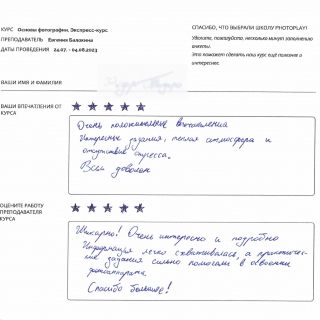 КУРС Основы фотографии. Экспресс-курс.
ПРЕПОДАВАТЕЛЬ Евгения Балакина
ДАТЫ ПРОВЕДЕНИЯ 24.07. - 04.08.2023
СПАСИБО, ЧТО ВЫБРАЛИ ШКОЛУ PHOTOPLAY!
Уделите, пожалуйста, несколько минут заполнению
анкеты.
Это поможет сделать наш курс ещё полезнее и
интереснее.
ВАШИ ИМЯ И ФАМИЛИЯ
ВАШИ ВПЕЧАТЛЕНИЯ ОТ
КУРСА
Очень положительные впечатления
Интересные задания, теплая атмосфера и
отсутствие стресса.
Всем доволен
ОЦЕНИТЕ РАБОТУ
ПРЕПОДАВАТЕЛЯ
КУРСА
Шикарно! Очень интересно и подробно
Информация легко схватывалась, а практичес-
кие задания сильно помогали в освоении
фотоаппарата.
Спасибо большое!